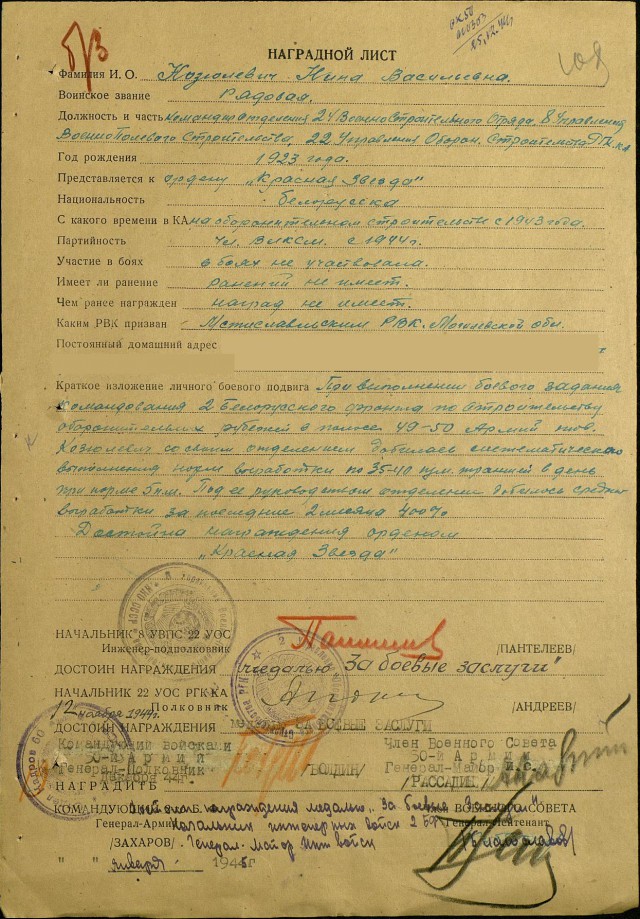 б/з
НАГРАДНОЙ ЛИСТ
Фамилия И. О. Козюлевич Нина Васильевна.
Воинское звание Рядовая.
Должность и часть командир отделения 24 Военно Строительного Отряда, 8 Управления
Военно Полевого Строительства, 22 Управления Оборон. Строительства РГК. КА
Год рождения 1923 года.
Представляется к ордену „Красная Звезда"
Национальность белорусска
С какого времени в КА на оборонительном строительстве с 1943 года.
Партийность Чл. ВЛКСМ. с 1944 г.
Участие в боях в боях не участвовала.
Имеет ли ранение ранений не имеет.
Чем ранее награжден наград не имеет.
Каким РВК призван Мстиславльским РВК. Могилевской обл.
Постоянный домашний адрес
Краткое изложение личного боевого подвига При выполнении боевого задания
Командования 2 Белорусского фронта по строительству
оборонительных рубежей в полосе 49-50 Армий тов.
Козюлевич со своим отделением добилась систематического
выполнения норм выработки по 35-40 п/м. траншей в день
при норме 5 пм. Под ее руководством отделение добилось средней
выработки за последние 2 месяца 400%
Достойна награждения орденом
„Красная Звезда"
НАЧАЛЬНИК 8 УВПС 22 УОС
Инженер-подполковник /ПАНТЕЛЕЕВ/
ДОСТОИН НАГРАЖДЕНИЯ медалью „За боевые заслуги"
НАЧАЛЬНИК 22 УОС РГК КА
Полковник /АНДРЕЕВ/
12 ноября 1944 г.
ДОСТОИН НАГРАЖДЕНИЯ медалью ЗА БОЕВЫЕ ЗАСЛУГИ
Командующий войсками Член Военного Совета
50-й Армии 50-й Армии
Генерал-Полковник /БОЛДИН/ Генерал-Майор и.с. /РАССАДИН/
НАГРАДИТЬ
КОМАНДУЮЩИЙ ВОЙСКАМИ 2 Б.Ф. ЧЛЕН ВОЕННОГО СОВЕТА
награждения медалью „За боевые заслуги"
Генерал-Армии Генерал-Лейтенант
Начальник инженерных войск 2 БФ
/ЗАХАРОВ/ Генерал-Майор инж войск /Благославов/
" " января 1945 г.